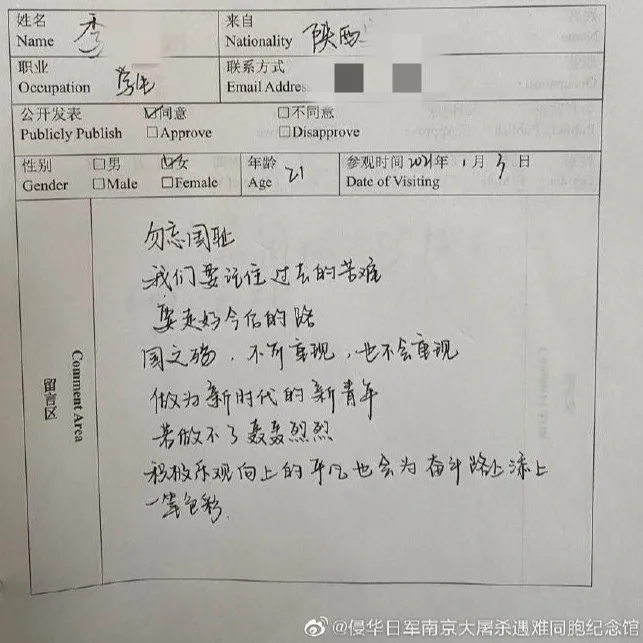 姓名 李 来自 陕西
Name Nationality
职业 学生 联系方式
Occupation Email Address
公开发表 ☑同意 □不同意
Publicly Publish □Approve □Disapprove
性别 □男 ☑女 年龄 21 参观时间 2021年 1月 3日
Gender □Male □Female Age Date of Visiting
留言区
Comment Area
勿忘国耻
我们要记住过去的苦难
要走好今后的路
国之殇，不可重现，也不会重现
做为新时代的新青年
若做不了轰轰烈烈
积极乐观向上的平凡也会为奋斗路上添上
一笔色彩.
@侵华日军南京大屠杀遇难同胞纪念馆